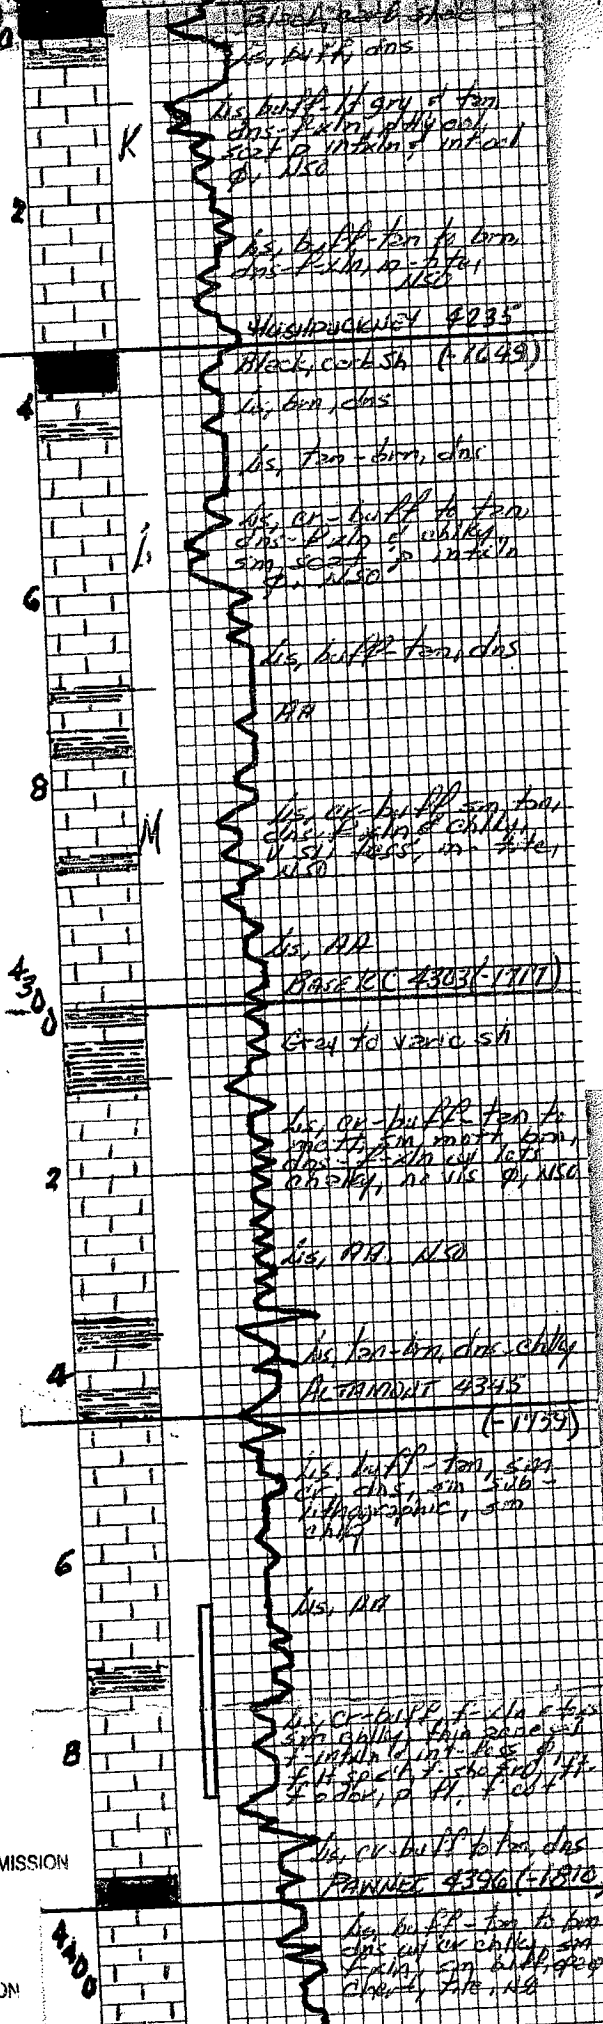 Black, carb shale
Ls, buff, dns
Ls, buff-lt gry & tan
dns-f-xln, ptly ool,
scat p intxln & int-ool
φ, NSO
K
2
Ls, buff-tan to brn,
dns-f-xln, m-tite,
NSO
HUSHPUCKNEY 4235
Black, carb sh (-1649)
4
Ls, brn, dns
Ls, tan-brn, dns
Ls, cr-buff to tan,
dns-f-xln & chlky,
sm scat p intxln
φ, NSO
L
6
Ls, buff-tan, dns
AA
8
Ls, cr-buff sm tan,
dns-f-xln & chlky,
v sl foss, m-tite,
NSO
M
Ls, AA
BASE KC 4303 (-1717)
4300
Gray to varic sh
Ls, cr-buff tan to
mott, sm mott brn,
dns-f-xln w/ lots
chalky, no vis φ, NSO
2
Ls, AA, NSO
Ls, tan-brn, dns-chlky
4
ALTAMONT 4345
(-1759)
Ls, buff-tan, sm
cr, dns, sm sub-
lithographic, sm
chlky
6
Ls, AA
Ls, cr-buff, f-xln & foss
sm chlky, thin
f-intxln & int-foss φ,
f-
f odor, p fl, f cut
8
Ls, cr-buff to tan, dns
MISSION
PAWNEE 4396 (-1810)
4400
Ls, buff-tan to brn
dns w/ cr chlky, sm
f-xln, sm buff, opaq
chert, tite, NS
ON